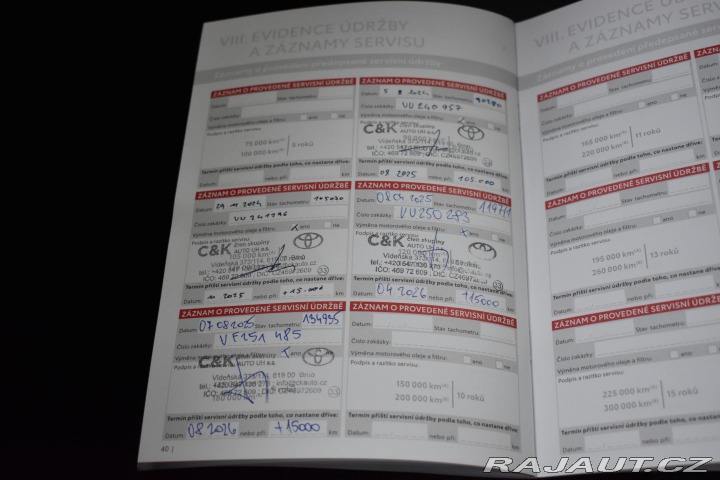 VIII. EVIDENCE ÚDRŽBY
A ZÁZNAMY SERVISU
Záznamy o provedení předepsané servisní údržby
ZÁZNAM O PROVEDENÉ SERVISNÍ ÚDRŽBĚ
Datum: Stav tachometru:
Číslo zakázky:
Výměna motorového oleje a filtru: ano ne
Podpis a razítko servisu
75 000 km
100 000 km
5 roků
Termín příští servisní údržby podle toho, co nastane dříve:
Datum: nebo při: km
ZÁZNAM O PROVEDENÉ SERVISNÍ ÚDRŽBĚ
Datum: 5 8 2024 Stav tachometru: 90780
Číslo zakázky: VU240957
Výměna motorového oleje a filtru: ano ne
Podpis a razítko servisu
C&K člen skupiny
AUTO UH a.s.
IČO: 469 72 609 ; DIČ: CZ46972609
33
Termín příští servisní údržby podle toho, co nastane dříve:
Datum: 08 2025 nebo při: 105 000 km
ZÁZNAM O PROVEDENÉ SERVISNÍ ÚDRŽBĚ
Datum: 29 11 2024 Stav tachometru: 105020
Číslo zakázky: VU241296
Výměna motorového oleje a filtru: ano ne
Podpis a razítko servisu
C&K člen skupiny
AUTO UH a.s.
Vídeňská 373/114, 619 00 Brno
IČO: 469 72 609 ; DIČ: CZ46972609
33
Termín příští servisní údržby podle toho, co nastane dříve:
Datum: 11 2025 nebo při: +15.000 km
ZÁZNAM O PROVEDENÉ SERVISNÍ ÚDRŽBĚ
Datum: 08 04 2025 Stav tachometru:
Číslo zakázky: VU250283
Výměna motorového oleje a filtru: ano ne
Podpis a razítko servisu
C&K člen skupiny
AUTO UH a.s.
IČO: 469 72 609 ; DIČ: CZ46972609
33
Termín příští servisní údržby podle toho, co nastane dříve:
Datum: 04 2026 nebo při: +15000 km
ZÁZNAM O PROVEDENÉ SERVISNÍ ÚDRŽBĚ
Datum: 07 08 2025 Stav tachometru: 134935
Číslo zakázky: VF251 485
Výměna motorového oleje a filtru: ano ne
Podpis a razítko servisu
C&K člen skupiny
AUTO UH a.s.
Vídeňská 373/114, 619 00 Brno
IČO: 469 72 609 ; DIČ: CZ46972609
33
Termín příští servisní údržby podle toho, co nastane dříve:
Datum: 08 2026 nebo při: +15000 km
ZÁZNAM O PROVEDENÉ SERVISNÍ ÚDRŽBĚ
Datum: Stav tachometru:
Číslo zakázky:
Výměna motorového oleje a filtru: ano ne
Podpis a razítko servisu
150 000 km
200 000 km
10 roků
Termín příští servisní údržby podle toho, co nastane dříve:
Datum: nebo při: km
40 |
VIII. EVIDENCE ÚD
A ZÁZNAMY SERV
Záznamy o provedení předepsané servisní
ZÁZNAM O PROVEDENÉ SERVISNÍ ÚDRŽBĚ
Datum: Stav tachometru:
Číslo zakázky:
Výměna motorového oleje a filtru: ano ne
Podpis a razítko servisu
165 000 km
220 000 km
11 roků
Termín příští servisní údržby podle toho, co nastane dříve:
Datum: nebo při: km
ZÁZNAM O PROVEDENÉ SERVISNÍ ÚDRŽBĚ
Datum: Stav tachometru:
Číslo zakázky:
Výměna motorového oleje a filtru: ano ne
Podpis a razítko servisu
195 000 km
260 000 km
13 roků
Termín příští servisní údržby podle toho, co nastane dříve:
Datum: nebo při: km
ZÁZNAM O PROVEDENÉ SERVISNÍ ÚDRŽBĚ
Datum: Stav tachometru:
Číslo zakázky:
Výměna motorového oleje a filtru: ano ne
Podpis a razítko servisu
225 000 km
300 000 km
15 roků
Termín příští servisní údržby podle toho, co nastane dříve:
Datum: nebo při:
RAJAUT.CZ